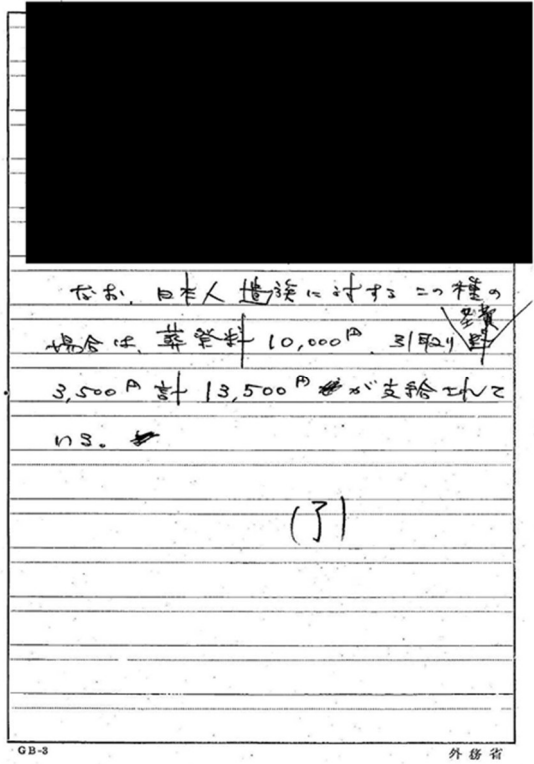 なお、日本人遺族に対するこの種の
場合は、葬祭料 10,000円、引取り経費
3,500円 計 13,500円が支給されて
いる。
(了)
GB-3
外務省